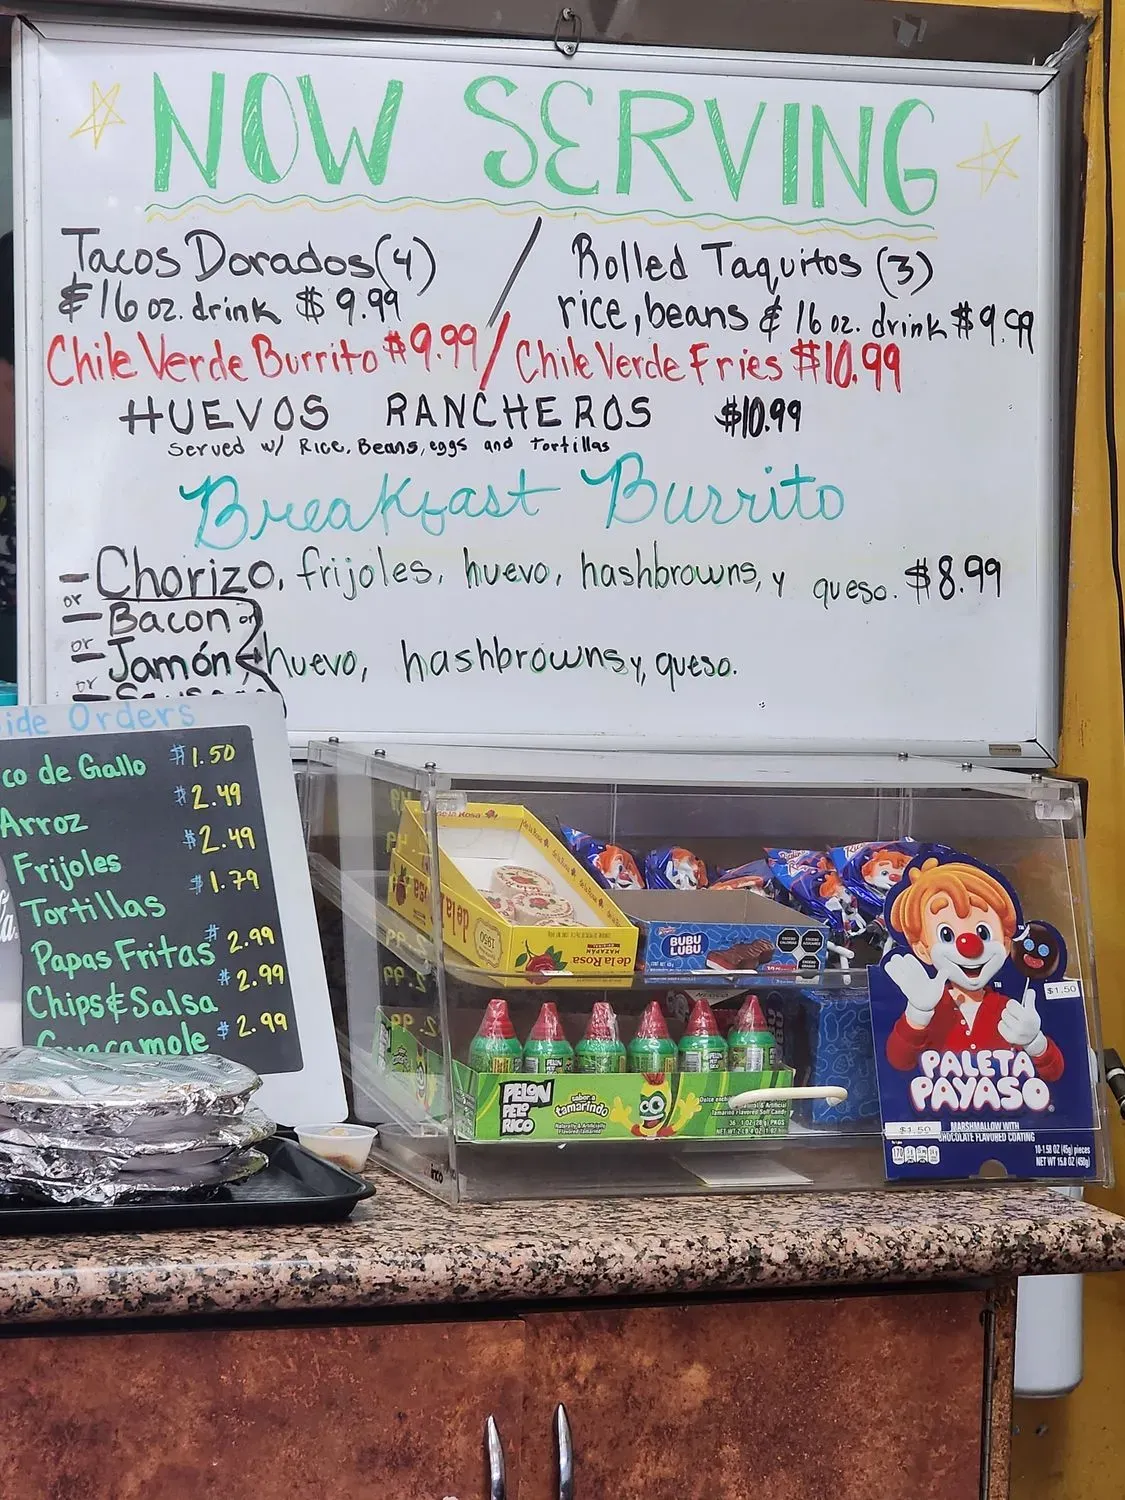 NOW SERVING
Tacos Dorados (4) / Rolled Taquitos (3)
& 16 oz. drink $9.99
rice, beans & 16 oz. drink $9.99
Chile Verde Burrito $9.99 / Chile Verde Fries $10.99
HUEVOS RANCHEROS $10.99
Served w/ Rice, Beans, eggs and Tortillas
Breakfast Burrito
- Chorizo, frijoles, huevo, hashbrowns, y queso. $8.99
or
- Bacon or
or
- Jamón, huevo, hashbrowns y, queso.
or
- Sausage
ide Orders
co de Gallo $1.50
Arroz $2.49
Frijoles $2.49
Tortillas $1.79
Papas Fritas $2.99
Chips & Salsa $2.99
Guacamole $2.99
de la Rosa
de la Rosa
MAZAPÁN
BUBU
LUBU
PELON
PELO
RICO
sabor a
tamarindo
Naturally & Artificially
Flavored Tamarind
Tamarind Flavored Soft Candy
$1.50
PALETA
PAYASO
$1.50
MARSHMALLOW WITH
CHOCOLATE FLAVORED COATING
10-1.58 OZ (45g) pieces
NET WT 15.8 OZ (450g)